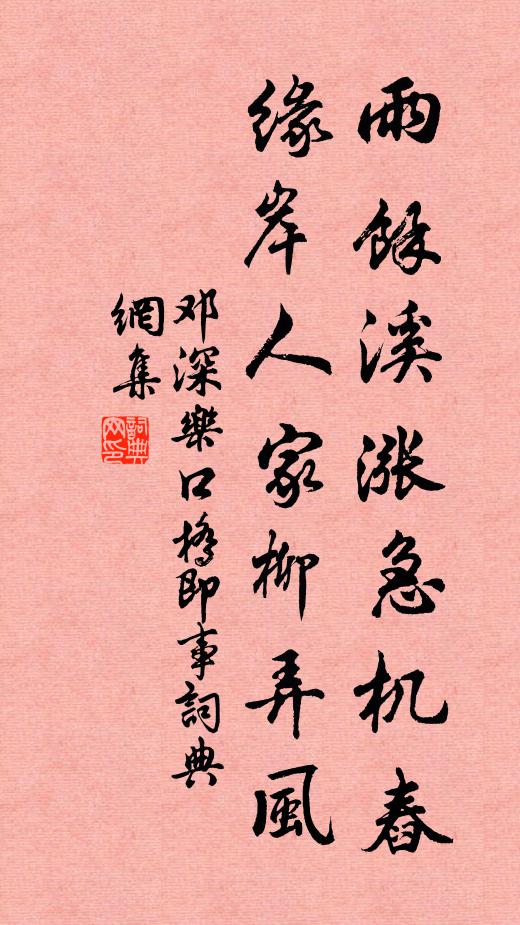 雨餘溪漲急机舂
缘岸人家柳弄風
邓深樂口橋即事詞典
網集
詞典
网印